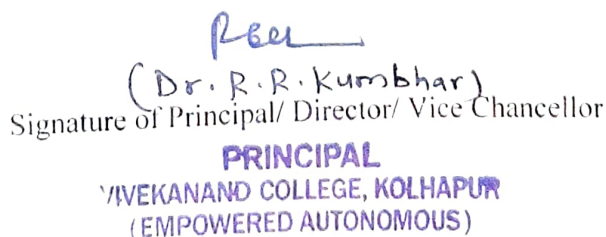 (Dr. R. R. Kumbhar)
Signature of Principal/ Director/ Vice Chancellor
PRINCIPAL
VIVEKANAND COLLEGE, KOLHAPUR
(EMPOWERED AUTONOMOUS)